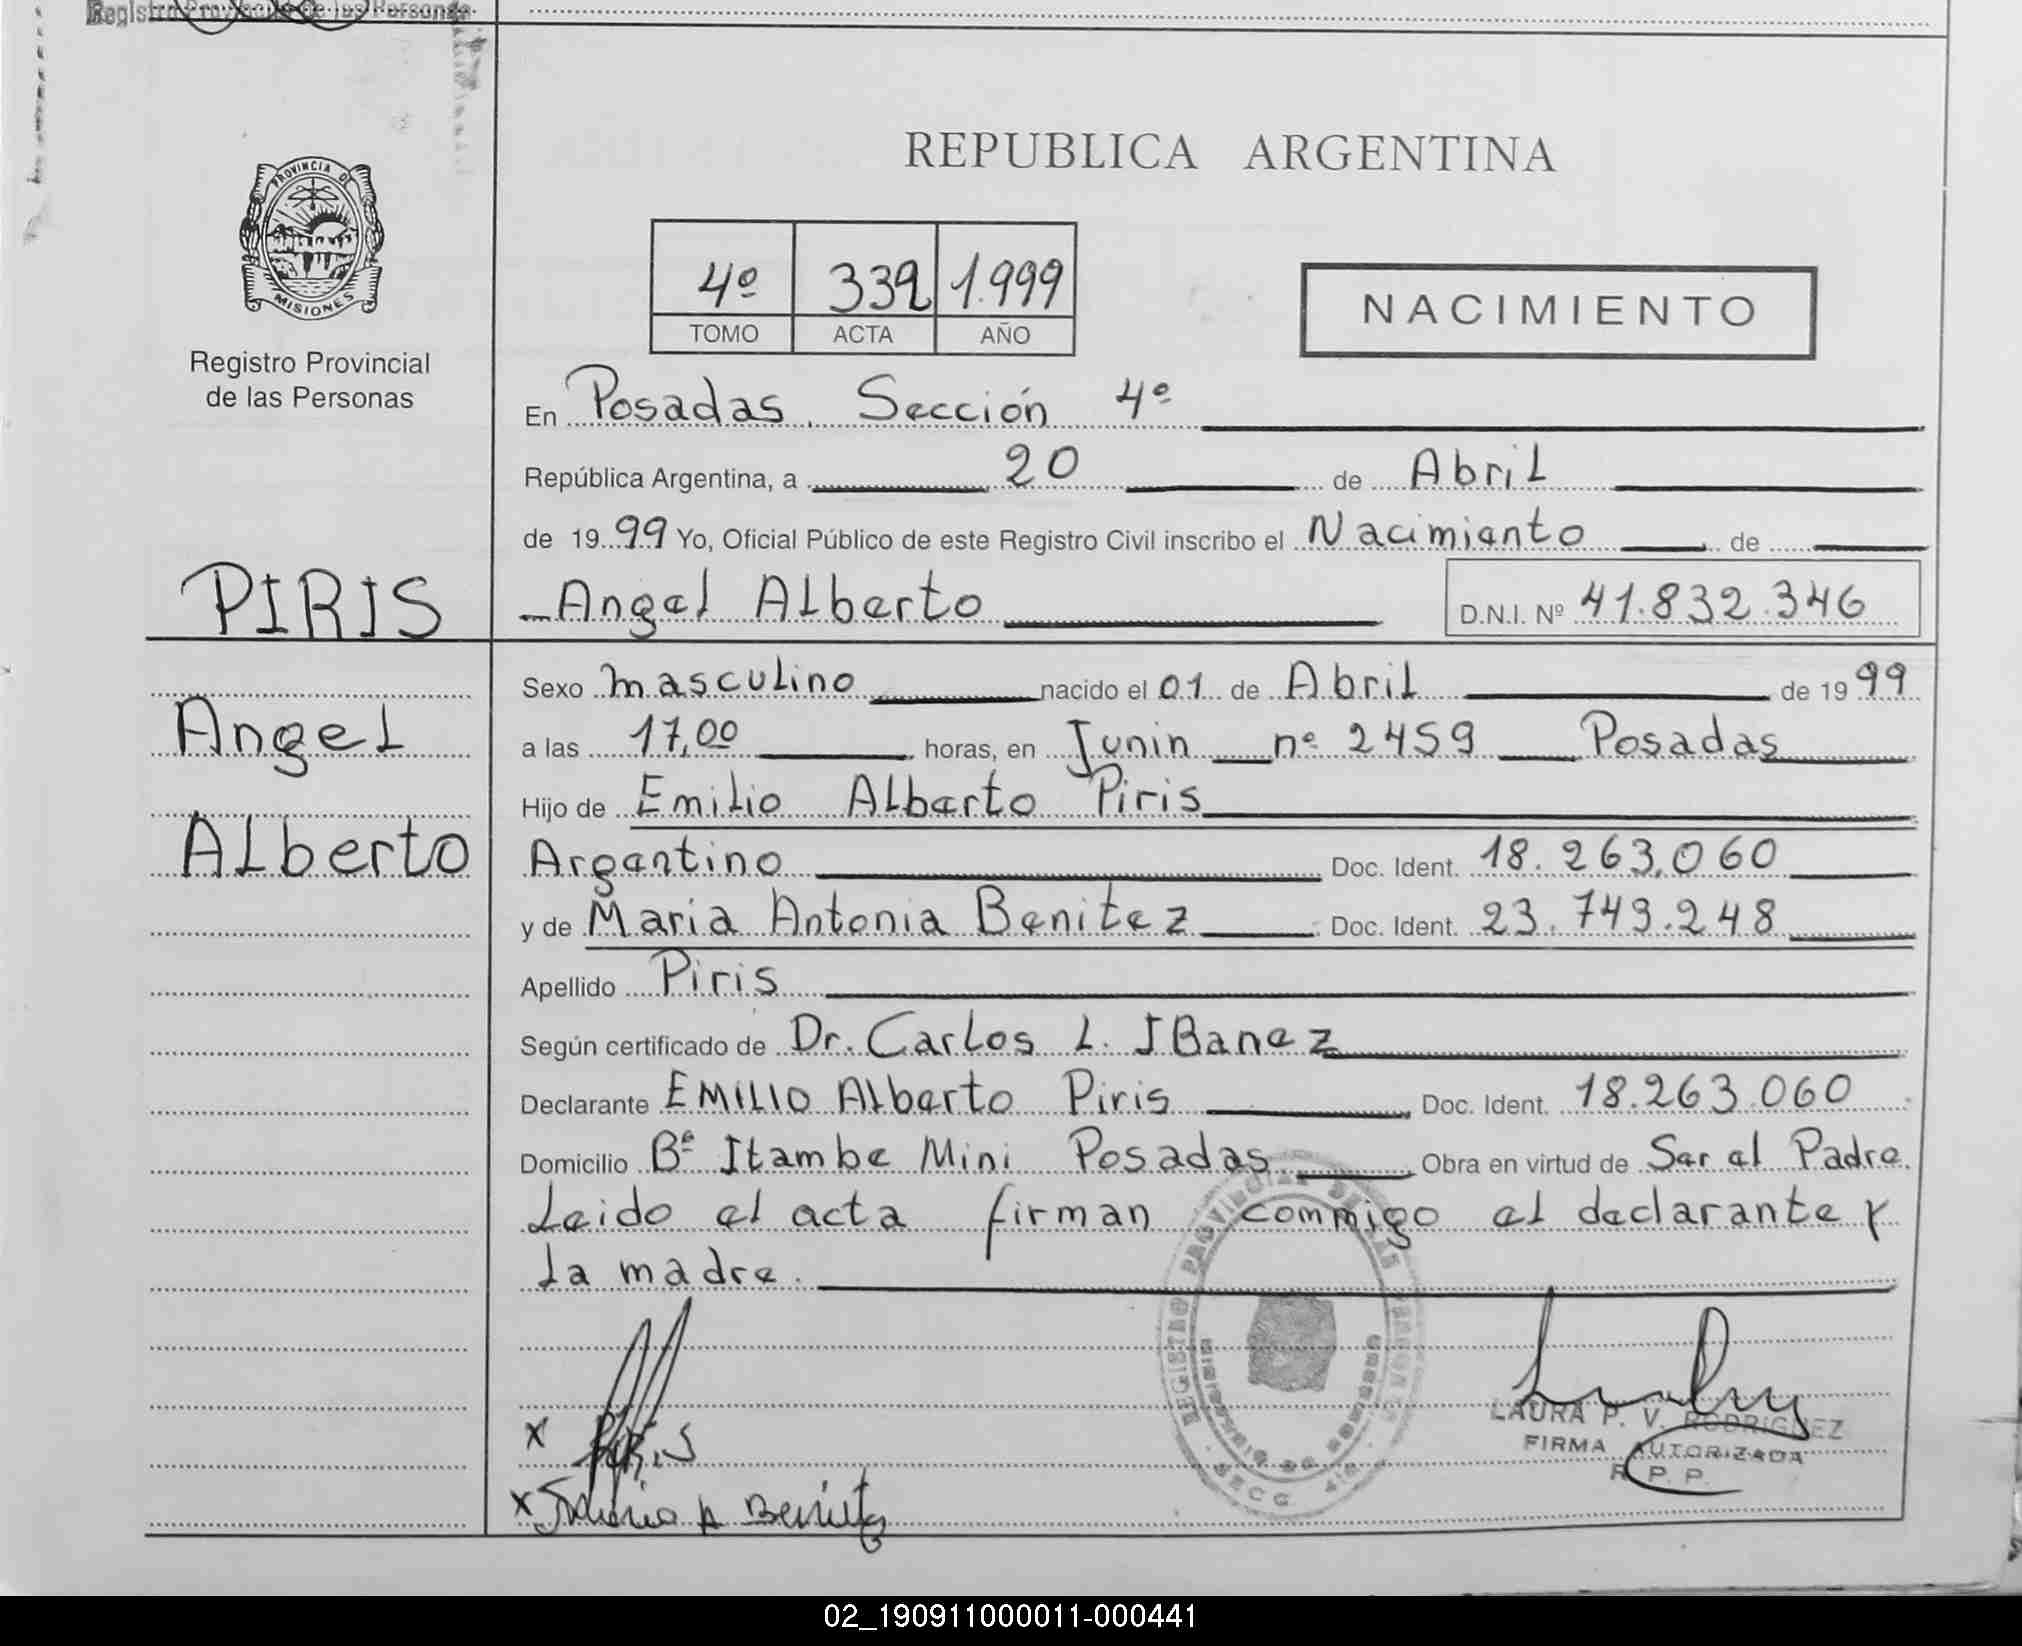 Registro Provincial de las Personas
PROVINCIA DE
MISIONES
Registro Provincial
de las Personas
REPUBLICA ARGENTINA
4º 339 1.999
TOMO ACTA AÑO
NACIMIENTO
En Posadas, Sección 4º
República Argentina, a 20 de Abril
de 1999 Yo, Oficial Público de este Registro Civil inscribo el Nacimiento de
PIRIS
Angel Alberto D.N.I. Nº 41.832.346
Sexo masculino nacido el 01 de Abril de 1999
Angel
a las 17,00 horas, en Junin nº 2459 Posadas
Hijo de Emilio Alberto Piris
Alberto
Argentino Doc. Ident. 18.263.060
y de Maria Antonia Benitez Doc. Ident. 23.749.248
Apellido Piris
Según certificado de Dr. Carlos L. IBanez
Declarante EMILIO Alberto Piris Doc. Ident. 18.263.060
Domicilio Bº Itambe Mini Posadas Obra en virtud de Ser el Padre.
Leido el acta firman commigo el declarante y
la madre.
REGISTRO PROVINCIAL DE LAS PERSONAS
SECC. 4ta
x PIRIS
x A Benitez
LAURA P. V. RODRIGUEZ
FIRMA AUTORIZADA
R. P. P.
02_190911000011-000441